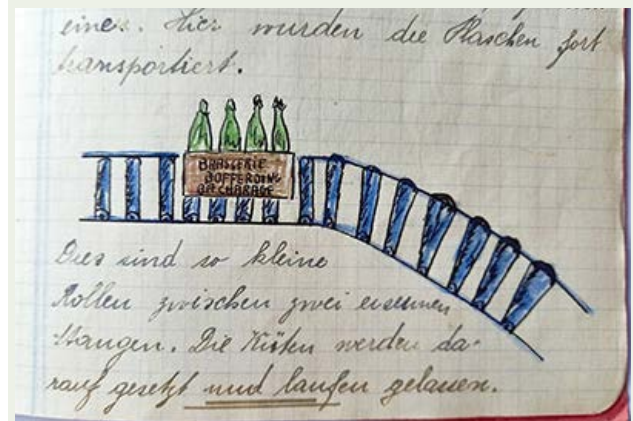 eines. Hier wurden die Flaschen fort
transportiert.
BRASSERIE
BOFFERDING
BASCHARAGE
Dies sind so kleine
Rollen zwischen zwei eisernen
Stangen. Die Kisten werden da-
rauf gesetzt und laufen gelassen.